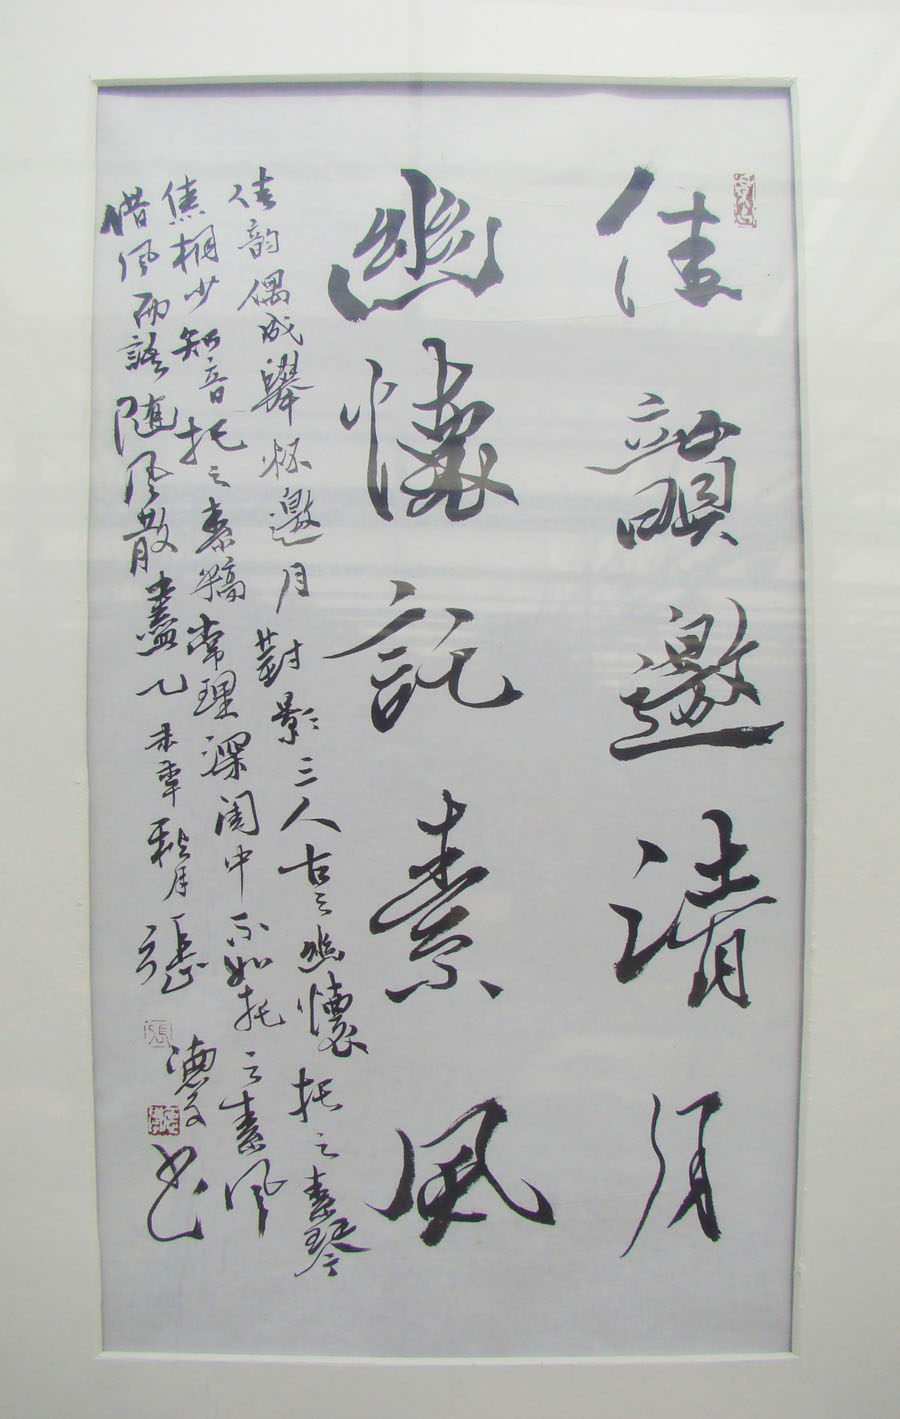 佳韻邀清月
幽懷託素風
佳韵偶成舉杯邀月對影三人古之幽懷托之素琴
焦桐少知音托之素稿常理深闺中不如托之素风
借风而語随风散盡乙未年秋月張德文书
張